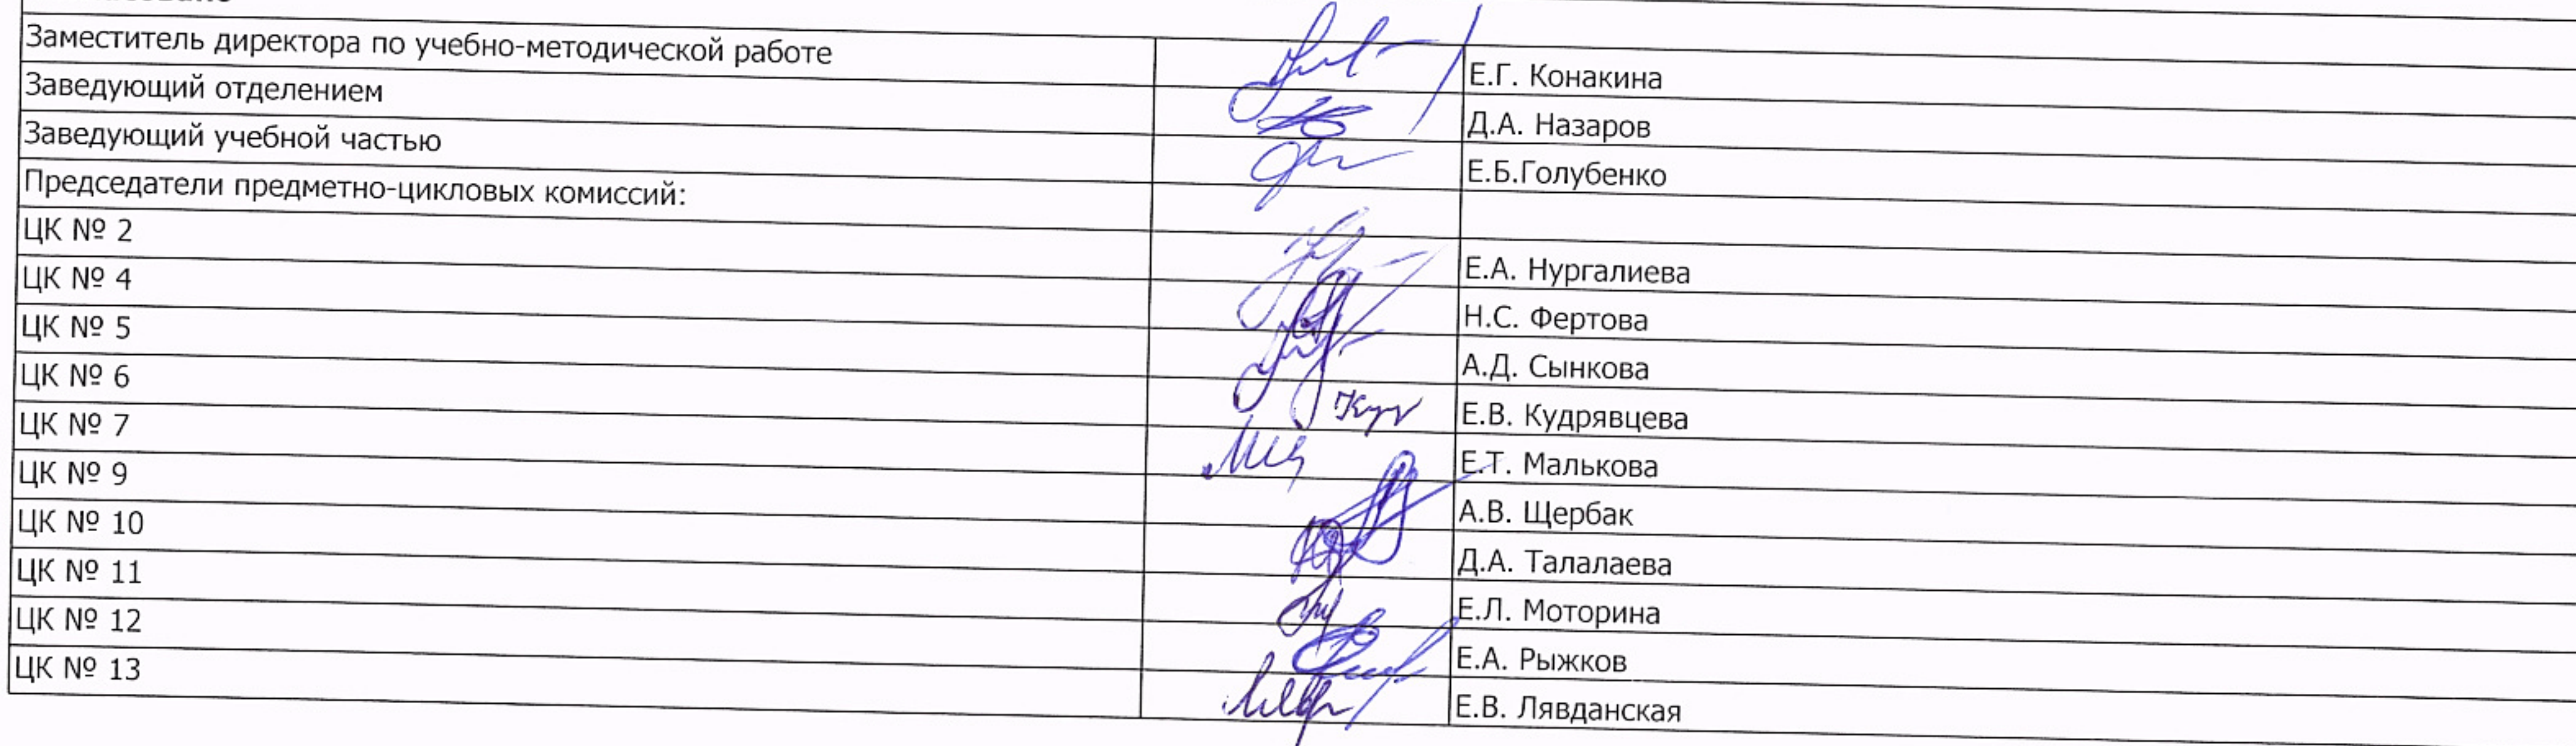 Заместитель директора по учебно-методической работе Е.Г. Конакина
Заведующий отделением Д.А. Назаров
Заведующий учебной частью Е.Б.Голубенко
Председатели предметно-цикловых комиссий:
ЦК № 2 Е.А. Нургалиева
ЦК № 4 Н.С. Фертова
ЦК № 5 А.Д. Сынкова
ЦК № 6 Е.В. Кудрявцева
ЦК № 7 Е.Т. Малькова
ЦК № 9 А.В. Щербак
ЦК № 10 Д.А. Талалаева
ЦК № 11 Е.Л. Моторина
ЦК № 12 Е.А. Рыжков
ЦК № 13 Е.В. Лявданская